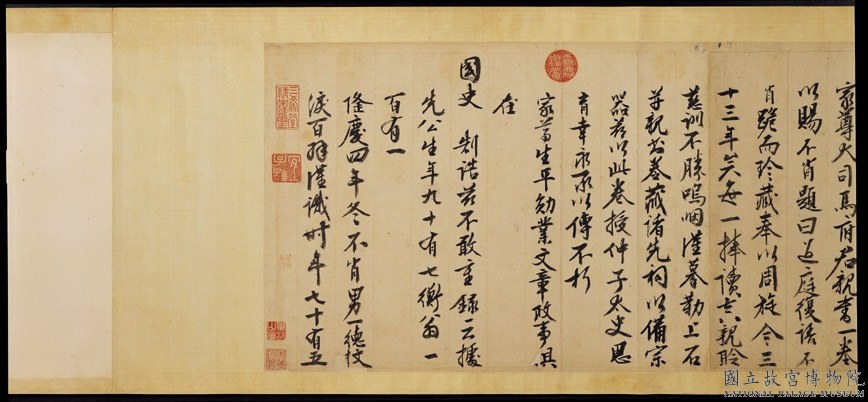 家尊大司馬府君親書一卷
以賜不肖題曰過庭復語不
肖跪而珍藏奉以周旋今三
十三年矣每一捧讀言言親聆
慈訓不勝嗚咽謹摹勒上石
并親書卷藏諸先祠以備宗
器茲以此卷授仲子太史思
育幸永永以傳不朽
家尊生平勛業文章政事具
在
國史 制誥茲不敢言錄云據
先公生年九十有七衡翁一
百有一
隆慶四年冬不肖男一德抆
淚百拜謹識時年七十有五
國立故宮博物院
NATIONAL PALACE MUSEUM